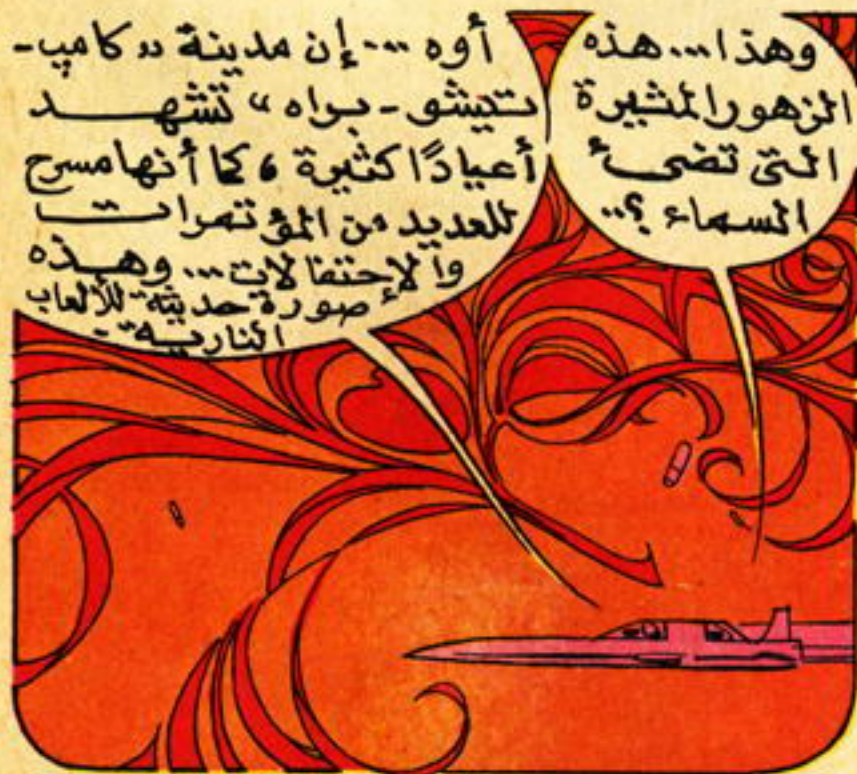 وهذا... هذه
الزهور المثيرة
التى تضىء
السماء؟..
أوه... إن مدينة «كامب-
تيشو-براه» تشهد
أعيادًا كثيرة، كما أنها مسرح
للعديد من المؤتمرات
والإحتفالات... وهذه
صورة حديثة للألعاب
النارية-